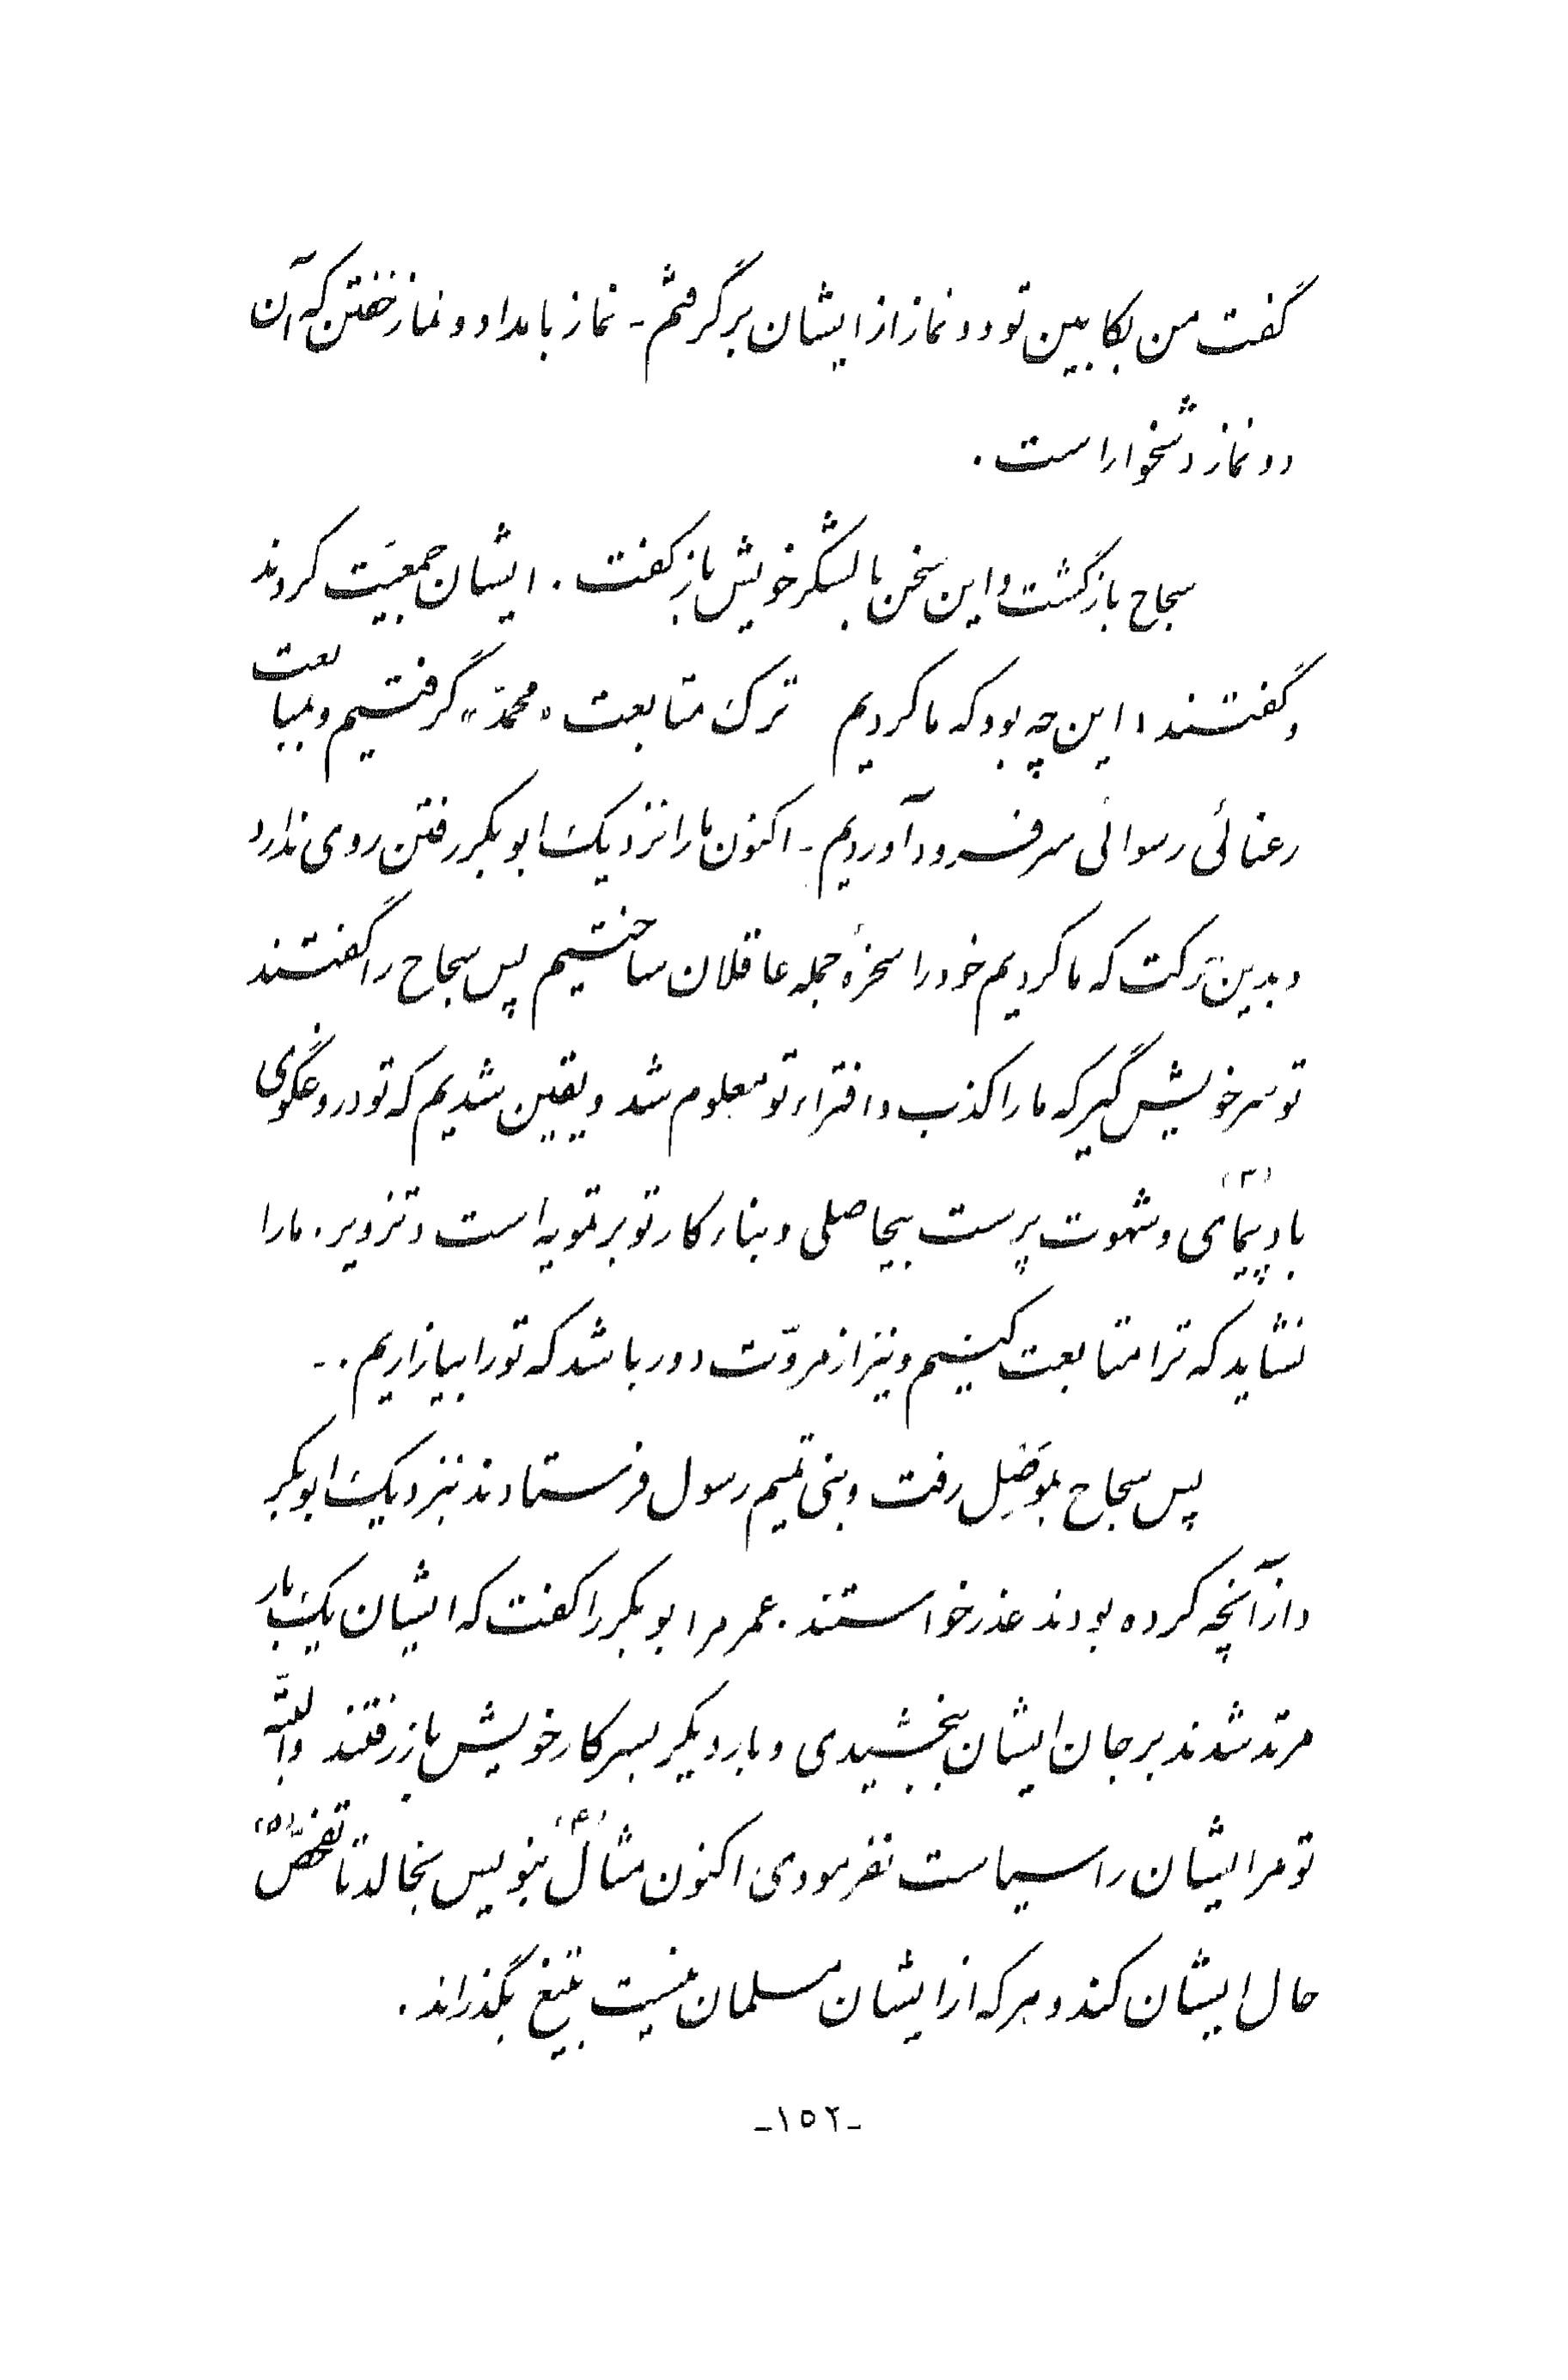 گفت من بکابین تو دو نماز از ایشان برگرفتم ـ نماز بامداد و نماز خفتن که آن
دو نماز دشخوار است .
سجاح بازگشت و این سخن با لشکر خویش باز گفت . ایشان جمعیّت کردند
و گفتند : این چه بود که ما کردیم ترک متابعت «محمّد» گرفتیم و بمبایعت
رعنائی رسوائی سر فرود آوردیم ـ اکنون ما را نزدیک ابوبکر رفتن روی ندارد
و بدین حَرَکت که ما کردیم خود را سخرهٔ جمله عاقلان ساختیم پس سجاح را گفتند
تو سر خویش گیر که ما را کذب و افتراء تو معلوم شد و یقین شدیم که تو دروغگوی
باد پیمای (۳) و شهوت پرست بیحاصلی و بناء کار تو بر تمویه است و تزویر . ما را
نشاید که ترا متابعت کنیم و نیز از مروّت دور باشد که تو را بیازاریم . ـ
پس سجاح بموَصِل رفت و بنی تمیم رسول فرستادند بنزدیک ابوبکر
و از آنچه کرده بودند عذر خواستند . عمر مر ابوبکر را گفت که ایشان یکبار
مرتد شدند بر جان ایشان ببخشیدی و بار دیگر بسر کار خویش باز رفتند و البتّه
تو مر ایشان را سیاست نفرمودی اکنون مثال (۴) بنویس بخالد تا تفحّص (۵)
حال ایشان کند و هر که از ایشان مسلمان نیست بتیغ بگذراند .
ـ ۱۵۲ ـ